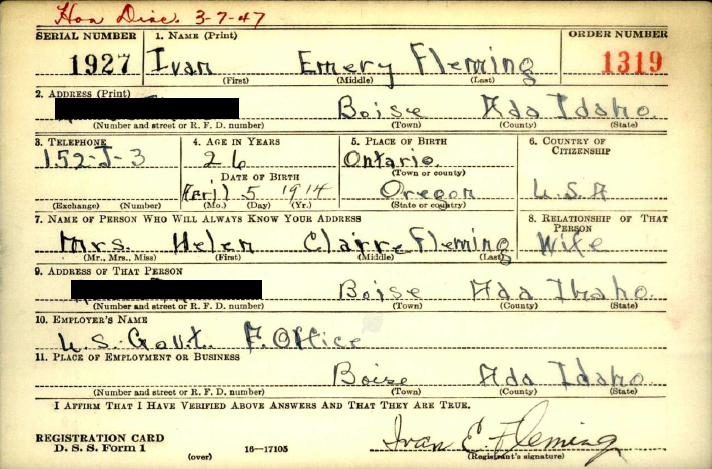 Hon Disc. 3-7-47
SERIAL NUMBER 1. NAME (Print) ORDER NUMBER
1927 Ivan Emery Fleming 1319
(First) (Middle) (Last)
2. ADDRESS (Print)
Boise Ada Idaho.
(Number and street or R. F. D. number) (Town) (County) (State)
3. TELEPHONE 4. AGE IN YEARS 5. PLACE OF BIRTH 6. COUNTRY OF CITIZENSHIP
152-J-3 26 Ontario.
DATE OF BIRTH (Town or county)
April 5 1914 Oregon U.S.A
(Exchange) (Number) (Mo.) (Day) (Yr.) (State or country)
7. NAME OF PERSON WHO WILL ALWAYS KNOW YOUR ADDRESS 8. RELATIONSHIP OF THAT PERSON
Mrs. Helen Claire Fleming Wife
(Mr., Mrs., Miss) (First) (Middle) (Last)
9. ADDRESS OF THAT PERSON
Boise Ada Idaho.
(Number and street or R. F. D. number) (Town) (County) (State)
10. EMPLOYER'S NAME
U.S. Govt. P. Office
11. PLACE OF EMPLOYMENT OR BUSINESS
Boise Ada Idaho.
(Number and street or R. F. D. number) (Town) (County) (State)
I AFFIRM THAT I HAVE VERIFIED ABOVE ANSWERS AND THAT THEY ARE TRUE.
REGISTRATION CARD
D. S. S. Form 1 (over) 16—17105 Ivan E. Fleming
(Registrant's signature)